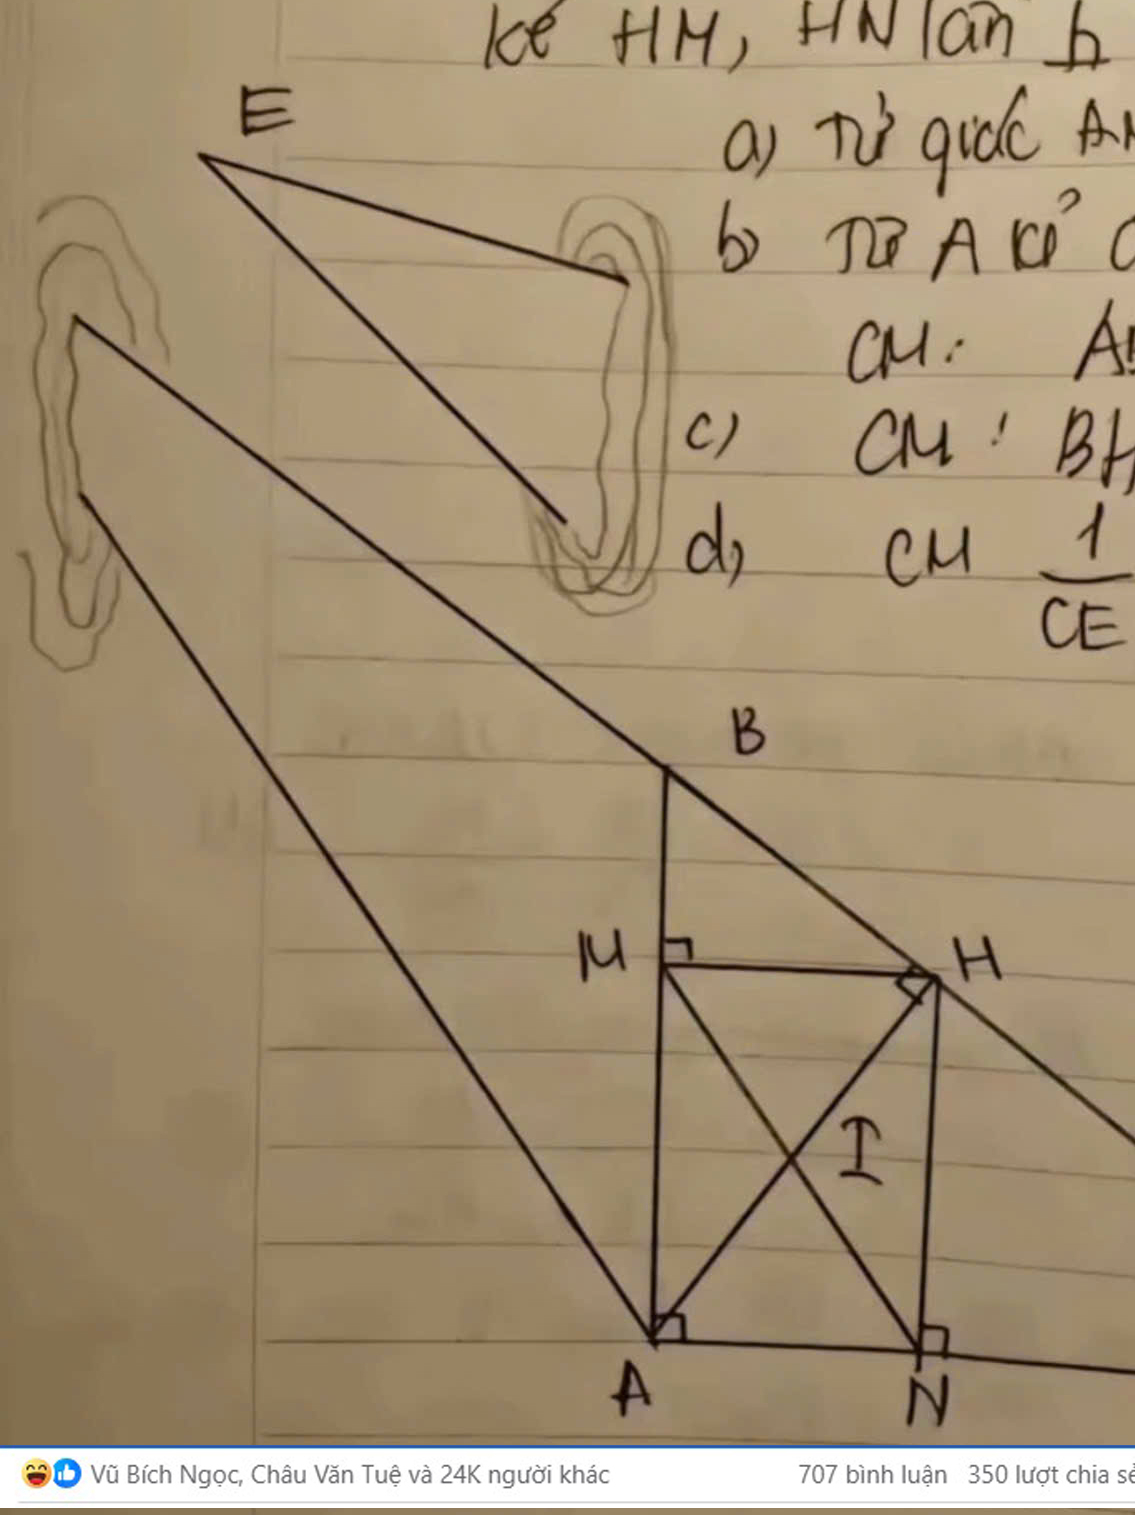 kẻ HM, HN lần
a) Tứ giác
b) Từ A kẻ
CM:
c) CM: BH
d) CM 1
CE
E
B
M H
I
A N
Vũ Bích Ngọc, Châu Văn Tuệ và 24K người khác 707 bình luận 350 lượt chia sẻ